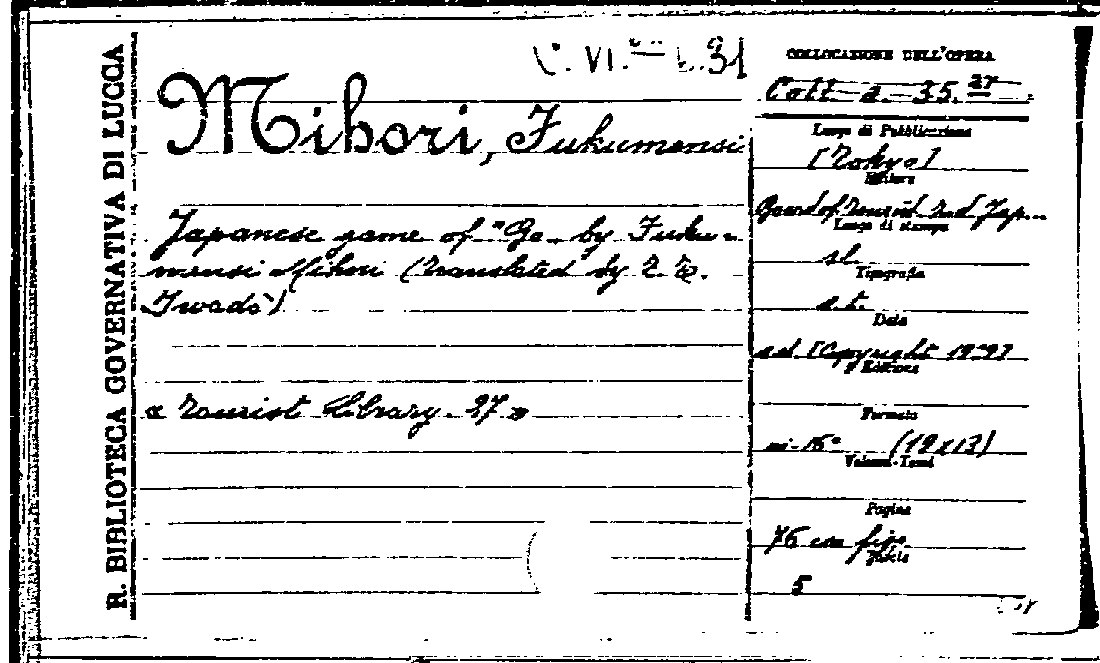 R. BIBLIOTECA GOVERNATIVA DI LUCCA
C. VI. 31
Mihori, Fukumensi
Japanese game of "Go by Fuku-
mensi Mihori (translated by Z. T.
Iwado)
« Tourist Library. 27 »
COLLOCAZIONE DELL'OPERA
Coll. 2. 35. 27
Luogo di Pubblicazione
[Tokyo]
Editore
Board of Tourist Ind. Jap...
Luogo di stampa
sl.
Tipografia
s.t.
Data
sd [Copyright 1939]
Edizione
Formato
in-16° (19x13)
Volumi-Tomi
Pagine
76 con figs
Tavole
5